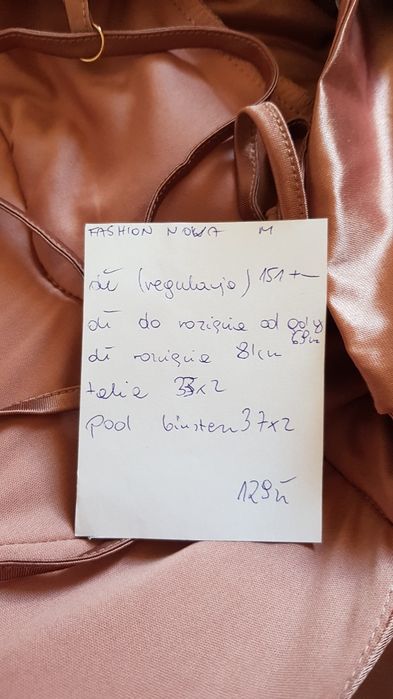 FASHION NOVA M
dł (regulacja) 151 +-
dł do rozcięcia od
69cm
dł rozcięcia 81cm
talia 33x2
pod biustem 37x2
129zł